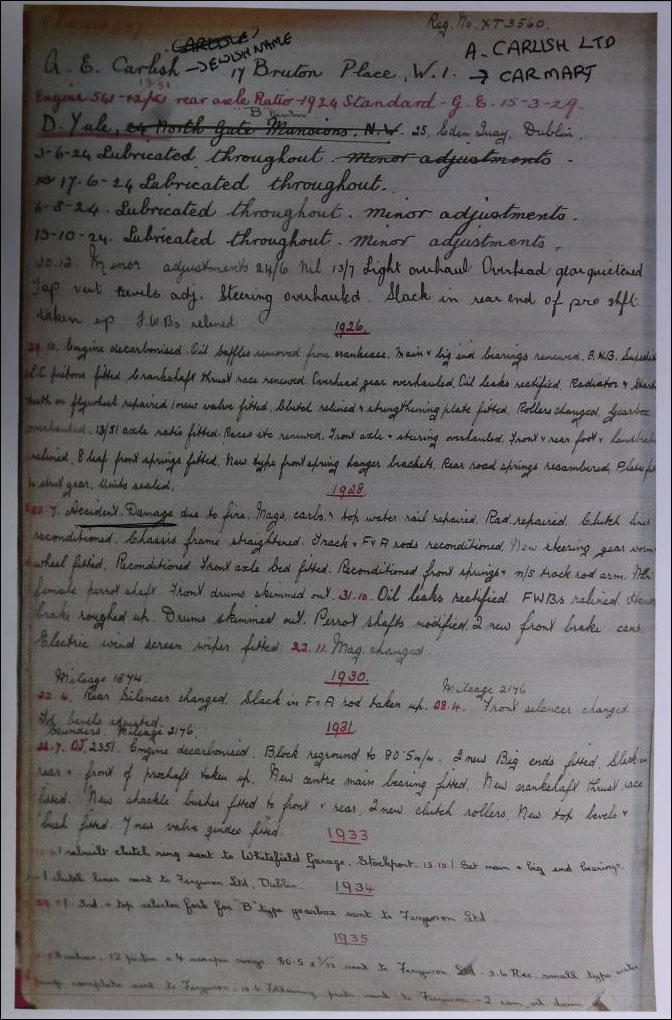 Chassis 557
Reg. No. XT3560.
CARLISLE?
A. E. Carlish → JEWISH NAME 17 Bruton Place, W.1.
A. CARLISH LTD
→ CARMART
13/51
Engine 541 rear axle Ratio - 1924 Standard - G.E. 15-3-29.
"B"
D. Yule, 24 North Gate Mansions, N.W. 25, Eden Quay, Dublin.
3-6-24 Lubricated throughout. minor adjustments.
17-6-24 Lubricated throughout.
6-8-24. Lubricated throughout. minor adjustments.
13-10-24. Lubricated throughout. Minor adjustments.
30.12. Minor adjustments 24/6 Nil 13/7 Light overhaul Overhead gear quietened
Top vert bevels adj. Steering overhauled. Slack in rear end of pro shft.
taken up F.W.Bs relined
1926.
29.10. Engine decarbonised. Oil baffles removed from crankcase. Main & big end bearings renewed.
L.C. pistons fitted. Crankshaft thrust race renewed. Overhead gear overhauled. Oil leaks rectified. Radiator &
teeth on flywheel repaired 1 new valve fitted. Clutch relined & strengthening plate fitted. Rollers changed. Gearbox
overhauled. 13/51 axle ratio fitted. Races etc renewed. Front axle & steering overhauled. Front & rear foot &
relined, 8 leaf front springs fitted, New type front spring hanger brackets, Rear road springs recambered,
strut gear. Units sealed.
1928
25.7. Accident Damage due to fire. Mag, carbs & top water rail repaired. Rad. repaired. Clutch liner
reconditioned. Chassis frame straightened. Track & F&A rods reconditioned. New steering gear worm
wheel fitted. Reconditioned Front axle bed fitted. Reconditioned front springs & n/s track rod arm.
female perrot shaft. Front drums skimmed out. 31.10. Oil leaks rectified. FWBs relined
brake roughed up. Drums skimmed out. Perrot shafts modified. 2 new front brake cams.
Electric wind screen wiper fitted. 22.11. Mag. changed.
Mileage 1874.
1930.
Mileage 2176
22.4. Rear Silencer changed. Slack in F&A rod taken up. 28.4. Front silencer changed
Top bevels adjusted.
Saunders. Mileage 2176.
1931
22.7. OJ 2351. Engine decarbonised. Block reground to 80.5 m/m. 2 new Big ends fitted. Slack in
rear & front of proshaft taken up. New centre main bearing fitted. New crankshaft thrust race
fitted. New shackle bushes fitted to front & rear, 2 new clutch rollers, New top bevels &
bush fitted. 7 new valve guides fitted.
1933
1 rebuilt clutch ring sent to Whitefield Garage, Stockport. 13.10 1 Set main & big end bearings.
1 clutch liner sent to Ferguson Ltd, Dublin.
1934
1 3rd & top selector fork for "B" type gearbox sent to Ferguson Ltd
1935
12 piston & 4 scraper rings. 80.5 x sent to Ferguson Ltd. 3.6 Rec. small type water
pump complete sent to Ferguson. 10.6 Following parts sent to Ferguson - 2 cam,